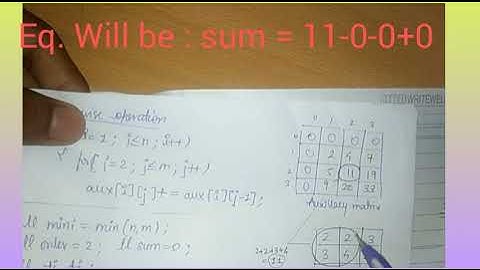 Eq. Will be : sum = 11-0-0+0
operation
=1; i≤n; i++)
for( j=2; j≤m; j++)
aux[i][j]+= aux[i][j-1];
ll mini = min(n,m);
ll order = 2; ll sum=0;
0 1 2 3
0 0 0 0 0
1 0 2 4 7
2 0 5 11 19
3 0 9 22 33
Auxiliary matrix
2+2+3+4
= 11
2 2 3
3 4